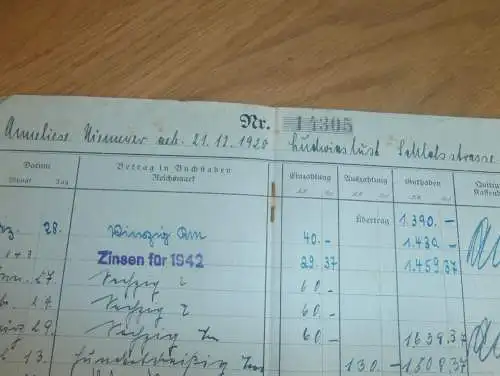 Nr. 14305
Anneliese Niemeyer geb. 21.12.1920 Ludwigslust Schloßstrasse
Datum Betrag in Buchstaben Einzahlung Auszahlung Guthaben
Monat Tag Reichsmark
Übertrag 1.390.-
28. Vierzig Rm 40.- 1.430.-
Zinsen für 1942 29.37 1.459,37
27 Sechzig " 60.-
27. Sechzig " 60.-
29. Sechzig Rm 60.- 1639.37
13. Hundertdreißig Rm 130.- 1509.37